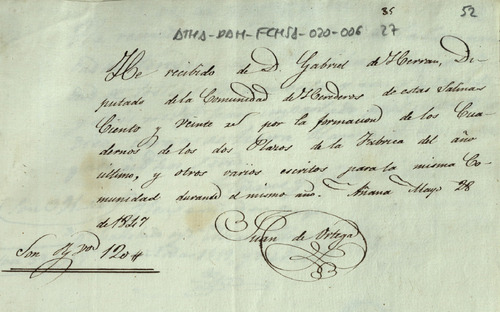 35 52
ATHA-DAH-FCMSA-020-006 27
He recibido de D. Gabriel de Herran, Di-
putado de la Comunidad de Herederos de estas Salinas
Ciento y Veinte rs por la formacion de los Cua-
dernos de los dos Plazos de la Fabrica del año
ultimo, y otros varios escritos para la misma Co-
munidad durante el mismo año. Añana Mayo 28
de 1847
Juan de Ortega
Son 120